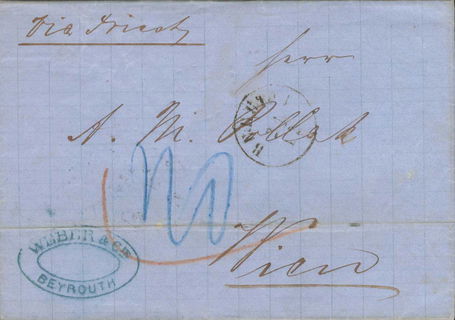 Via Triest
Herrn
A. M. Pollak
Wien
WEBER & CIE
BEYROUTH